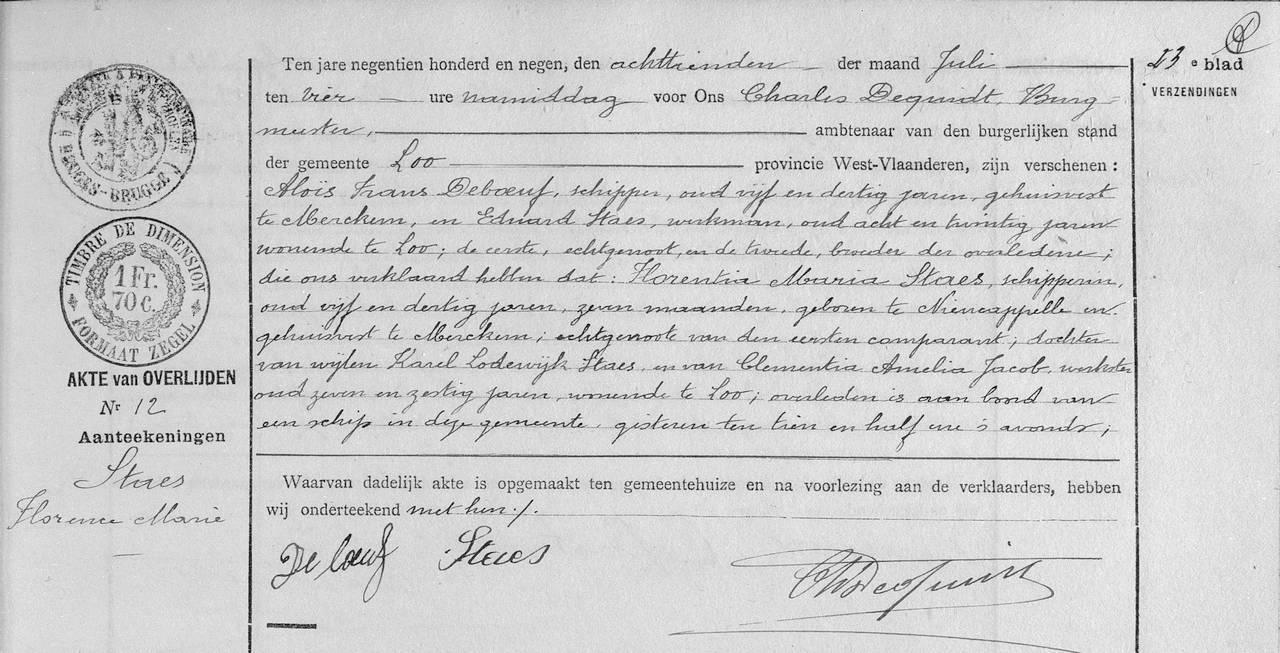 23e blad
VERZENDINGEN
BRUGES-BRUGGE
TIMBRE DE DIMENSION
1 Fr.
70 C.
FORMAAT ZEGEL
AKTE van OVERLIJDEN
Nr 12
Aanteekeningen
Staes
Florence Marie
Ten jare negentien honderd en negen, den achttienden der maand Juli
ten vier ure namiddag voor Ons Charles Dequidt, Burg=
meester, ambtenaar van den burgerlijken stand
der gemeente Loo provincie West-Vlaanderen, zijn verschenen :
Aloïs Frans Debœuf, schipper, oud vijf en dertig jaren, gehuisvest
te Merckem, en Eduard Staes, werkman, oud acht en twintig jaren
wonende te Loo; de eerste, echtgenoot, en de tweede, broeder der overledene;
die ons verklaard hebben dat: Florentia Maria Staes, schipperin,
oud vijf en dertig jaren, zeven maanden, geboren te Nieucappelle en
gehuisvest te Merckem; echtgenoote van den eersten comparant; dochter
van wijlen Karel Lodewijk Staes, en van Clementia Amelia Jacob, werkster
oud zeven en zestig jaren, wonende te Loo; overleden is aan bord van
een schip in deze gemeente, gisteren ten tien en half ure 's avonds;
Waarvan dadelijk akte is opgemaakt ten gemeentehuize en na voorlezing aan de verklaarders, hebben
wij onderteekend met hen./.
De bœuf Staes Ch Dequidt